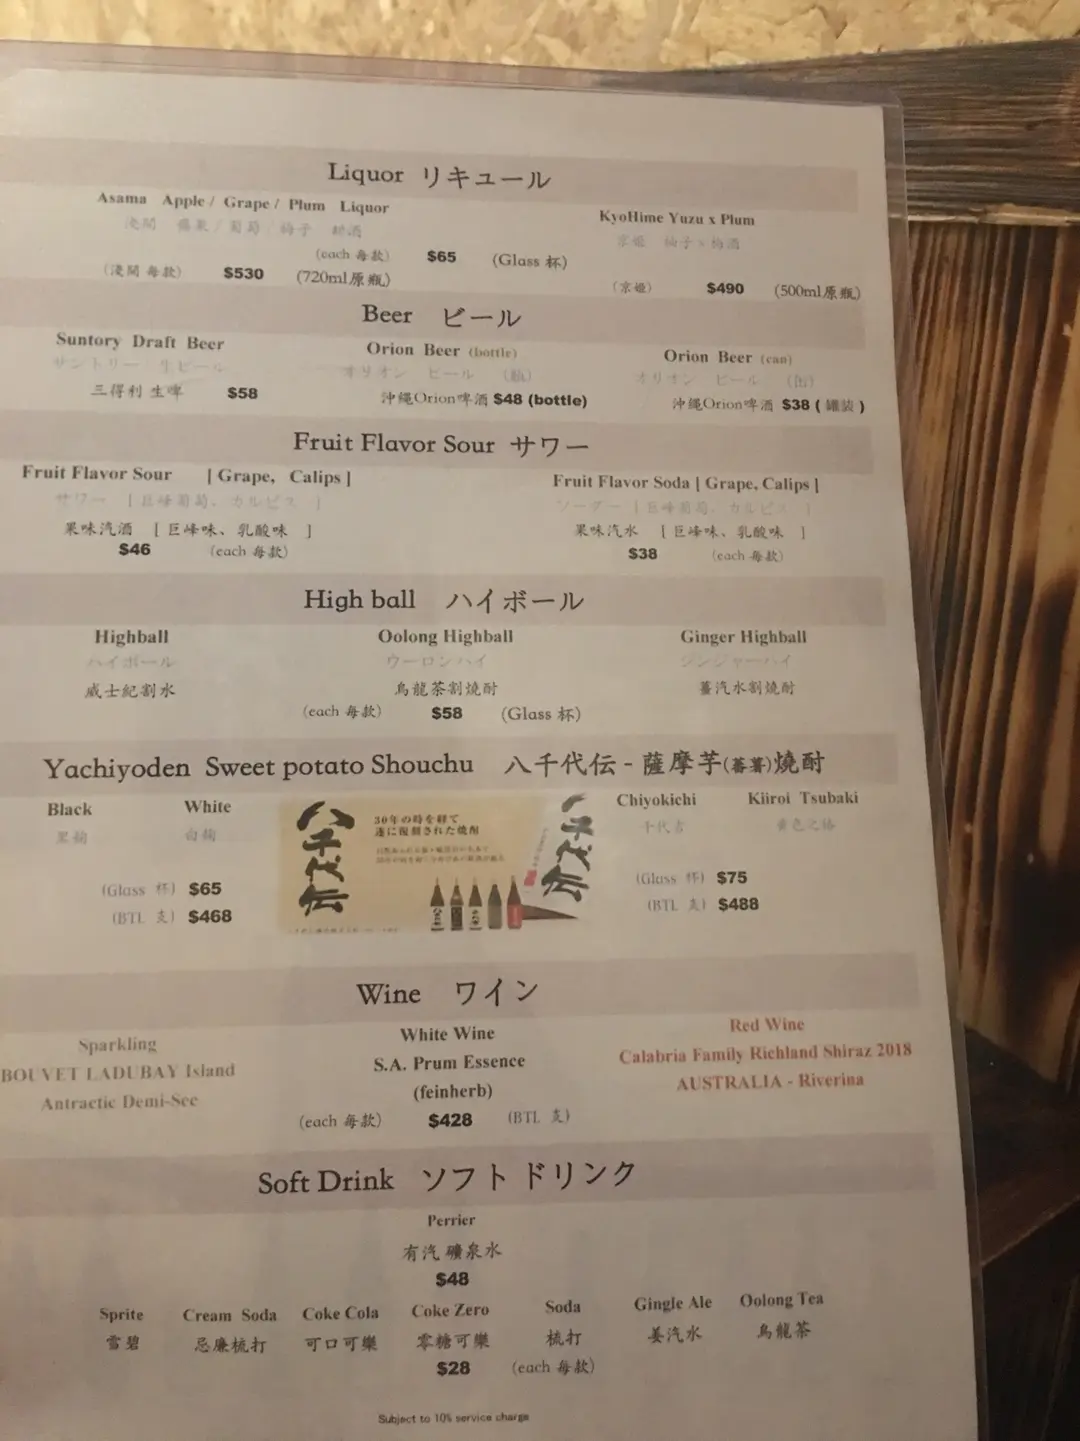 Liquor リキュール
Asama Apple / Grape / Plum Liquor
KyoHime Yuzu x Plum
淺間 蘋果 / 葡萄 / 梅子 酎酒
京姫 柚子 x 梅酒
(each 每款) $65 (Glass 杯)
(淺間 每款) $530 (720ml原瓶)
(京姬) $490 (500ml原瓶)
Beer ビール
Suntory Draft Beer
Orion Beer (bottle)
Orion Beer (can)
サントリー 生ビール
オリオン ビール (瓶)
オリオン ビール (缶)
三得利 生啤 $58
沖縄Orion啤酒 $48 (bottle)
沖縄Orion啤酒 $38 ( 罐裝 )
Fruit Flavor Sour サワー
Fruit Flavor Sour [ Grape, Calips ]
Fruit Flavor Soda [ Grape, Calips ]
サワー [ 巨峰葡萄、カルピス ]
ソーダー [ 巨峰葡萄、カルピス ]
果味汽酒 [ 巨峰味、乳酸味 ]
果味汽水 [ 巨峰味、乳酸味 ]
$46 (each 每款)
$38 (each 每款)
High ball ハイボール
Highball
Oolong Highball
Ginger Highball
ハイボール
ウーロンハイ
ジンジャーハイ
威士紀割水
烏龍茶割燒酎
薑汽水割燒酎
(each 每款) $58 (Glass 杯)
Yachiyoden Sweet potato Shouchu 八千代伝 - 薩摩芋(蕃薯)燒酎
Black White
Chiyokichi Kiiroi Tsubaki
黒麹 白麹
千代吉 黄色之椿
(Glass 杯) $65
(BTL 支) $468
八千代伝
30年の時を経て
遂に復刻された焼酎
八千代伝
(Glass 杯) $75
(BTL 支) $488
Wine ワイン
Sparkling
BOUVET LADUBAY Island
Antractic Demi-Sec
White Wine
S.A. Prum Essence
(feinherb)
Red Wine
Calabria Family Richland Shiraz 2018
AUSTRALIA - Riverina
(each 每款) $428 (BTL 支)
Soft Drink ソフトドリンク
Perrier
有汽 礦泉水
$48
Sprite Cream Soda Coke Cola Coke Zero Soda Gingle Ale Oolong Tea
雪碧 忌廉梳打 可口可樂 零糖可樂 梳打 姜汽水 烏龍茶
$28 (each 每款)
Subject to 10% service charge